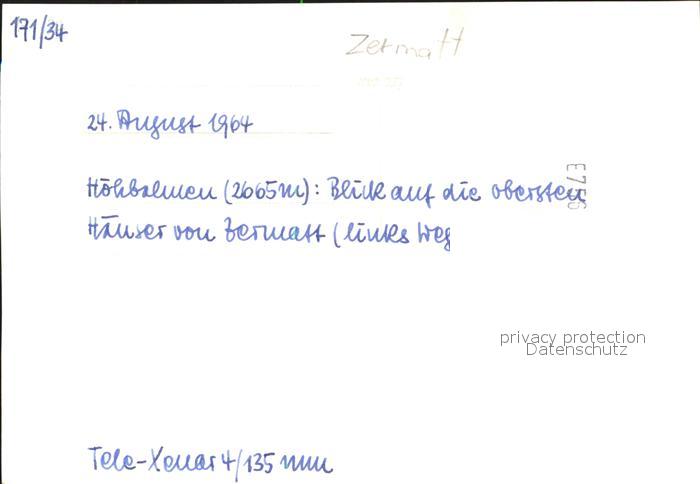 171/34
Zermatt
24. August 1964
Höhbalmen (2665m): Blick auf die obersten
Häuser von Zermatt (links Weg
privacy protection
Datenschutz
Tele-Xenar 4/135 mm